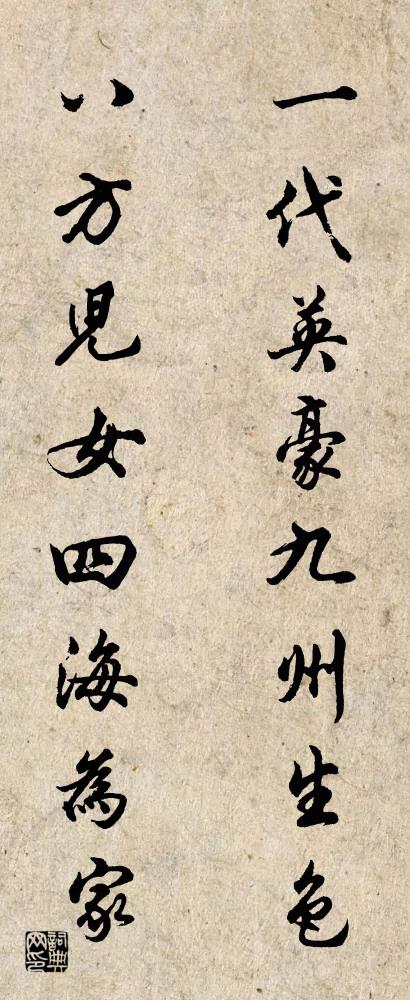 一代英豪九州生色
八方兒女四海為家
詞典網印